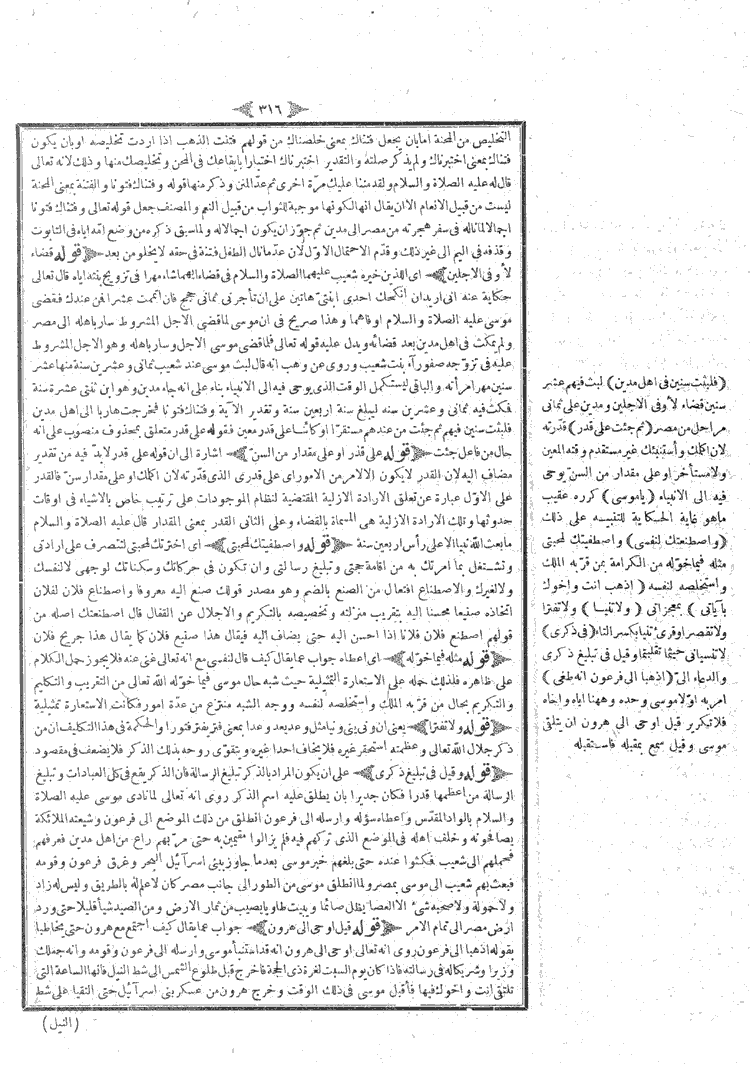 ﴿ ٣١٦ ﴾
التخليص من المحنة اما بان يجعل فتناك بمعنى خلصناك من قولهم فتنت الذهب اذا اردت تخليصه او بان يكون
فتناك بمعنى اختبرناك ولم يذكر صلته والتقدير اختبرناك اختبارا بايقاعك فى المحن وتخليصك منها وذلك لانه تعالى
قال له عليه الصلاة والسلام ولقد مننا عليك مرّة اخرى ثم عدّ المنن وذكر منها قوله وفتناك فتونا والفتنة بمعنى المحنة
ليست من قبيل الانعام الا ان يقال انها لكونها موجبة للثواب من قبيل النعم والمصنف جعل قوله تعالى وفتناك فتونا
اجمالا لما ناله فى سفر هجرته من مصر الى مدين ثم جوّز ان يكون اجمالا له ولما سبق ذكره من وضع امّه اياه فى التابوت
وقذفه فى اليم الى غير ذلك وقدّم الاحتمال الاوّل لان عدّ ما نال الطفل فتنة فى حقه لا يخلو من بعد ﴿قوله قضاء
لاوفى الاجلين﴾ اى اللذين خيره شعيب عليهما الصلاة والسلام فى قضاء ايهما شاء مهرا فى تزويج بنته اياه قال تعالى
حكاية عنه انى اريد ان انكحك احدى ابنتىّ هاتين على ان تأجرنى ثمانى حجج فان اتممت عشرا فمن عندك فقضى
موسى عليه الصلاة والسلام اوفاهما وهذا صريح فى ان موسى لما قضى الاجل المشروط سار باهله الى مصر
ولم يمكث فى اهل مدين بعد قضائه ويدل عليه قوله تعالى فلما قضى موسى الاجل وسار باهله وهو الاجل المشروط
عليه فى تزوّجه صفورآء بنت شعيب وروى عن وهب انه قال لبث موسى عند شعيب ثمانى وعشرين سنة منها عشر
سنين مهر امرأته والباقى ليستكمل الوقت الذى يوحى فيه الى الانبياء بناء على انه جاء مدين وهو ابن ثنتى عشرة سنة
فمكث فيه ثمانى وعشرين سنه ليبلغ سنة اربعين سنة وتقدير الآية وفتناك فتونا فخرجت هاربا الى اهل مدين
فلبثت سنين فيهم ثم جئت من عندهم مستقرّا او كائنا على قدر معين فقوله على قدر متعلق بمحذوف منصوب على انه
حال من فاعل جئت ﴿قوله على قدر او على مقدار من السنّ﴾ اشارة الى ان قوله على قدر لابدّ فيه من تقدير
مضاف اليه لان القدر لا يكون الا لامر من الامور اى على قدرى الذى قدّرته لان اكلمك او على مقدار سنّ فالقدر
على الاوّل عبارة عن تعلق الارادة الازلية المقتضية لنظام الموجودات على ترتيب خاص بالاشياء فى اوقات
حدوثها وتلك الارادة الازلية هى المسماة بالقضاء وعلى الثانى القدر بمعنى المقدار قال عليه الصلاة والسلام
ما بعث الله نبيا الا على رأس اربعين سنة ﴿قوله واصطفيتك لمحبتى﴾ اى اخترتك لمحبتى لتتصرف على ارادتى
وتشتغل بما امرتك به من اقامة حجتى وتبليغ رسالتى وان تكون فى حركاتك وسكناتك لوجهى لا لنفسك
ولا لغيرك والاصطناع افتعال من الصنع بالضم وهو مصدر قولك صنع اليه معروفا واصطناع فلان لفلان
اتخاذه صنيعا محسنا اليه بتقريب منزلته وتخصيصه بالتكريم والاجلال عن القفال قال اصطنعتك اصله من
قولهم اصطنع فلان فلانا اذا احسن اليه حتى يضاف اليه فيقال هذا صنيع فلان كما يقال هذا جريح فلان
﴿قوله مثله فيما خوّله﴾ اى اعطاه جواب عما يقال كيف قال لنفسى مع انه تعالى غنى عنه فلا يجوز حمل الكلام
على ظاهره فلذلك حمله على الاستعارة التمثيلية حيث شبه حال موسى فيما خوّله الله تعالى من التقريب والتكليم
والتكريم بحال من قرّبه الملك واستخلصه لنفسه ووجه الشبه منتزع من عدّة امور فكانت الاستعارة تمثيلية
﴿قوله ولا تفترا﴾ يعنى ان ونى ينى ونيا مثل وعد يعد وعدا بمعنى فتر يفتر فتورا والحكمة فى هذا التكليف ان من
ذكر جلال الله تعالى وعظمته استحقر غيره فلا يخاف احدا غيره ويتقوى روحه بذلك الذكر فلا يضعف فى مقصود
﴿قوله وقيل فى تبليغ ذكرى﴾ على ان يكون المراد بالذكر تبليغ الرسالة فان الذكر يقع فى كل العبادات وتبليغ
الرسالة من اعظمها قدرا فكان جديرا بان يطلق عليه اسم الذكر روى انه تعالى لما نادى موسى عليه الصلاة
والسلام بالواد المقدّس واعطاه سؤله وارسله الى فرعون انطلق من ذلك الموضع الى فرعون وشيعته الملائكة
يصافحونه وخلف اهله فى الموضع الذى تركهم فيه فلم يزالوا مقيمين به حتى مرّ بهم راع من اهل مدين فعرفهم
فحملهم الى شعيب فمكثوا عنده حتى بلغهم خبر موسى بعد ما جاوز ببنى اسرآئيل البحر وغرق فرعون وقومه
فبعث بهم شعيب الى موسى بمصر ولما انطلق موسى من الطور الى جانب مصر كان لا علم له بالطريق وليس له زاد
ولا حمولة ولا صحبة شئ الا العصا يظل صائما ويبيت طاويا يصيب من ثمار الارض ومن الصيد شيأ قليلا حتى ورد
ارض مصر الى تمام الامر ﴿قوله قيل اوحى الى هرون﴾ جواب عما يقال كيف اجتمع مع هرون حتى يخاطبا
بقوله اذهبا الى فرعون روى انه تعالى اوحى الى هرون انه قد استنبأ موسى وارسله الى فرعون وقومه وانه جعلك
وزيرا وشريكا له فى رسالته فاذا كان يوم السبت لغرة ذى الحجة فاخرج قبل طلوع الشمس الى شط النيل فانها الساعة التى
تلتقى انت واخوك فيها فأقبل موسى فى ذلك الوقت وخرج هرون من عسكر بنى اسرآئيل حتى التقيا على شط
(النيل)
(فلبثت سنين فى اهل مدين) لبث فيهم عشر
سنين قضاء لاوفى الاجلين ومدين على ثمانى
مراحل من مصر (ثم جئت على قدر) قدّرته
لان اكلمك واستنبئك غير مستقدم وقته المعين
ولا مستأخر او على مقدار من السنّ يوحى
فيه الى الانبياء (ياموسى) كرره عقيب
ماهو غاية الحكاية للتنبيه على ذلك
(واصطنعتك لنفسى) واصطفيتك لمحبتى
مثله فيما خوّله من الكرامة بمن قرّبه الملك
واستخلصه لنفسه (اذهب انت واخوك
بآياتى) بمعجزاتى (ولا تنيا) ولا تفترا
ولا تقصرا وقرئ تنيا بكسر التاء (فى ذكرى)
لا تنسيانى حيثما تقلبتما وقيل فى تبليغ ذكرى
والدعاء الىّ (اذهبا الى فرعون انه طغى)
امر به اوّلا موسى وحده وههنا اياه واخاه
فلا تكرير قيل اوحى الى هرون ان يتلقى
موسى وقيل سمع بمقبله فاستقبله